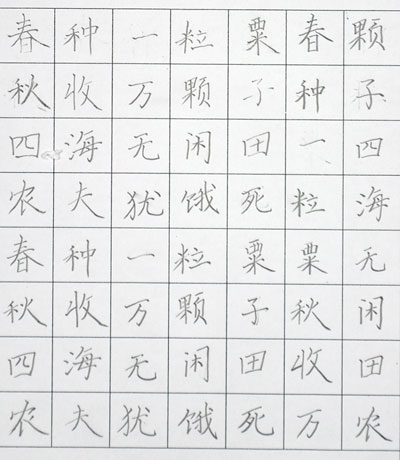 春种一粒粟春颗
秋收万颗子种子
四海无闲田一四
农夫犹饿死粒海
春种一粒粟粟无
秋收万颗子秋闲
四海无闲田收田
农夫犹饿死万农